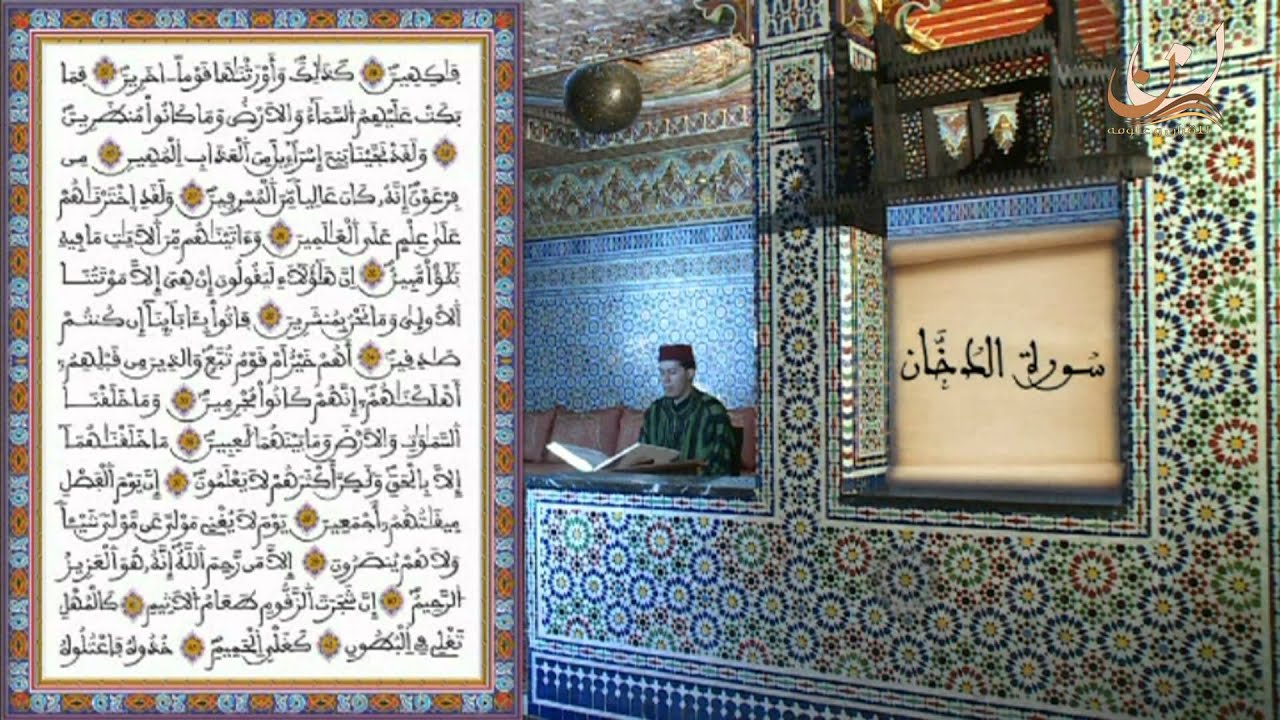 فَاكِهِينَ كَذَٰلِكَ وَأَوْرَثْنَٰهَا قَوْماً ـاخَرِينَ فَمَا
بَكَتْ عَلَيْهِمُ السَّمَآءُ وَالَارْضُ وَمَا كَانُواْ مُنظَرِينَ
وَلَقَدْ نَجَّيْنَا بَنِےٓ إِسْرَآءِيلَ مِنَ الْعَذَابِ اِلْمُهِينِ مِن
فِرْعَوْنَ إِنَّهُۥ كَانَ عَالِياً مِّنَ الْمُسْرِفِينَ وَلَقَدِ اِخْتَرْنَٰهُمْ
عَلَىٰ عِلْمٍ عَلَى الْعَٰلَمِينَ وَءَاتَيْنَٰهُم مِّنَ الَايَٰتِ مَا فِيهِ
بَلَٰٓؤٌاْ مُّبِينٌ إِنَّ هَٰٓؤُلَآءِ لَيَقُولُونَ إِنْ هِيَ إِلَّا مَوْتَتُنَا
اَلُاولَىٰ وَمَا نَحْنُ بِمُنشَرِينَ فَاتُواْ بِـَٔابَآئِنَآ إِن كُنتُمْ
صَٰدِقِينَ أَهُمْ خَيْرٌ اَمْ قَوْمُ تُبَّعٍ وَالذِينَ مِن قَبْلِهِمُۥٓ
أَهْلَكْنَٰهُمُۥٓ إِنَّهُمْ كَانُواْ مُجْرِمِينَ وَمَا خَلَقْنَا
اَلسَّمَٰوَٰتِ وَالَارْضَ وَمَا بَيْنَهُمَا لَٰعِبِينَ مَا خَلَقْنَٰهُمَآ
إِلَّا بِالْحَقِّ وَلَٰكِنَّ أَكْثَرَهُمْ لَا يَعْلَمُونَ إِنَّ يَوْمَ الْفَصْلِ
مِيقَٰتُهُمُۥٓ أَجْمَعِينَ يَوْمَ لَا يُغْنِے مَوْلًى عَن مَّوْلًى شَيْـٔاً
وَلَا هُمْ يُنصَرُونَ إِلَّا مَن رَّحِمَ اَللَّهُ إِنَّهُۥ هُوَ الْعَزِيزُ
اَلرَّحِيمُ إِنَّ شَجَرَتَ اَلزَّقُّومِ طَعَامُ الَاثِيمِ كَالْمُهْلِ
تَغْلِے فِے الْبُطُونِ كَغَلْيِ اِلْحَمِيمِ خُذُوهُ فَاعْتُلُوهُ
سورة الدخان